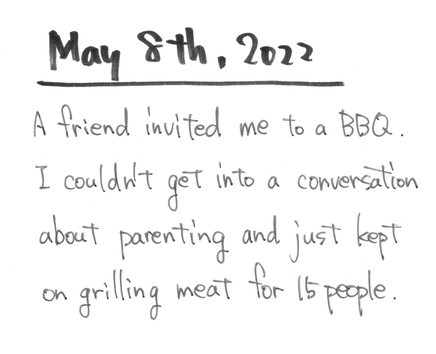 May 8th, 2022
A friend invited me to a BBQ.
I couldn't get into a conversation
about parenting and just kept
on grilling meat for 15 people.